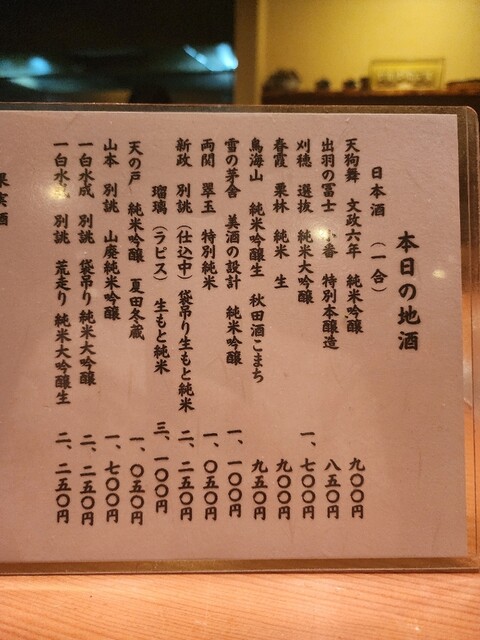 本日の地酒
日本酒 (一合)
天狗舞 文政六年 純米吟醸 九〇〇円
出羽の冨士 小番 特別本醸造 八五〇円
刈穂 選抜 純米大吟醸 一、七〇〇円
春霞 栗林 純米 生 九〇〇円
鳥海山 純米吟醸生 秋田酒こまち 九五〇円
雪の茅舎 美酒の設計 純米吟醸 一、一〇〇円
両関 翠玉 特別純米 一、〇五〇円
新政 別誂 (仕込中) 袋吊り生もと純米 二、二五〇円
瑠璃(ラピス) 生もと純米 三、一〇〇円
天の戸 純米吟醸 夏田冬蔵 一、〇五〇円
山本 別誂 山廃純米吟醸 一、七〇〇円
一白水成 別誂 袋吊り純米大吟醸 二、二五〇円
一白水成 別誂 荒走り 純米大吟醸生 二、二五〇円
果実酒